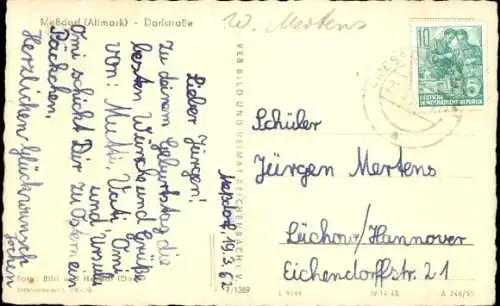 Meßdorf (Altmark) - Dorfstraße
W. Mertens
Meßdorf, 19.3.62
Lieber Jürgen!
Zu deinem Geburtstag die
besten Wünsche und Grüße
von: Mutti, Vati, Omi
und Ursula
Omi schickt Dir zu Ostern ein
Päckchen.
Herzlichen Glückwunsch
Jochen
VEB BILD UND HEIMAT REICHENBACH i. V.
10
DEUTSCHE
DEMOKRATISCHE REPUBLIK
Schüler
Jürgen Mertens
Lüchow/Hannover
Eichendorffstr. 21
Foto: Bild und Heimat
IV-14-45
A 246/55